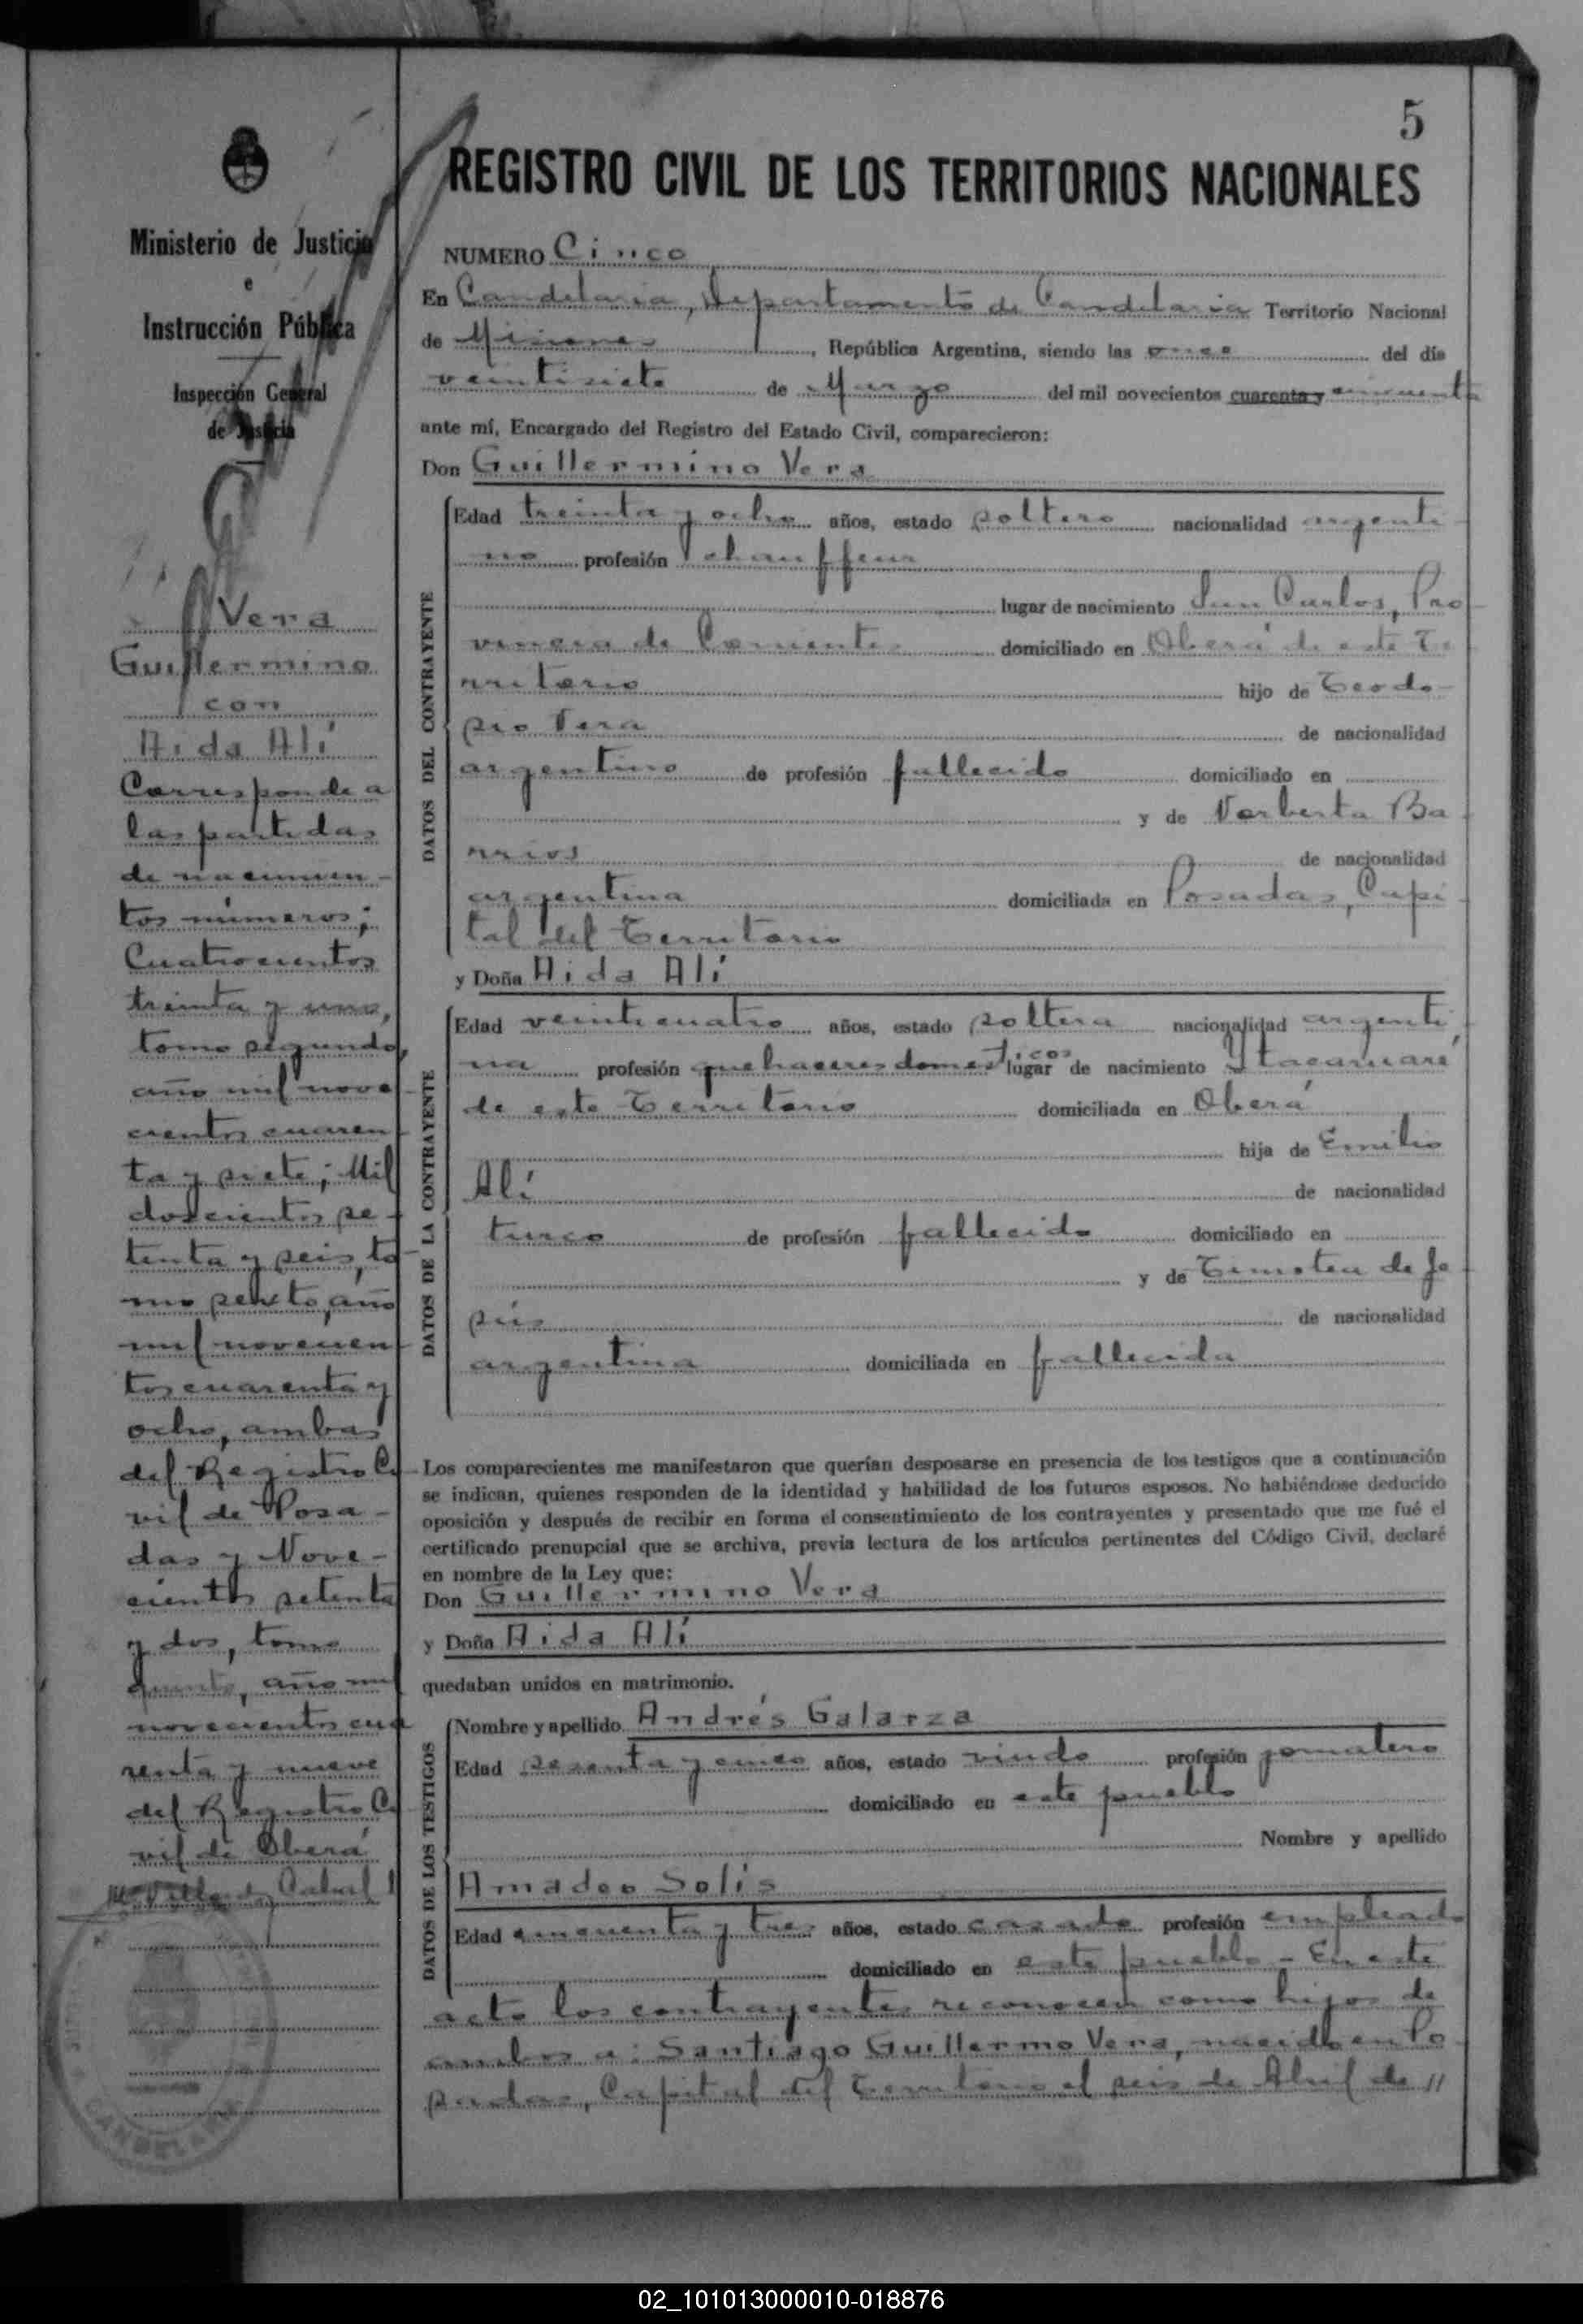 5
REGISTRO CIVIL DE LOS TERRITORIOS NACIONALES
Ministerio de Justicia
e
Instrucción Pública
Inspección General
de Justicia
Vera
Guillermino
con
Aida Alí
Corresponde a
las partidas
de nacimien-
tos números;
Cuatrocientos
treinta y uno,
tomo segundo,
año mil nove-
cientos cuaren-
ta y siete; Mil
doscientos se-
tenta y seis, to-
mo sexto, año
mil novecien-
tos cuarenta y
ocho, ambas
del Registro Ci-
vil de Posa-
das y Nove-
cientos setenta
y dos, tomo
quinto, año mil
novecientos cua
renta y nueve
del Registro Ci
vil de Oberá
NUMERO Cinco
En Candelaria, Departamento de Candelaria Territorio Nacional
de Misiones, República Argentina, siendo las once del día
veintisiete de Marzo del mil novecientos cuarenta y cincuenta
ante mí, Encargado del Registro del Estado Civil, comparecieron:
Don Guillermino Vera
DATOS DEL CONTRAYENTE
Edad treinta y ocho años, estado soltero nacionalidad argenti-
no profesión chauffeur
lugar de nacimiento San Carlos, Pro-
vincia de Corrientes domiciliado en Oberá de este Te-
rritorio hijo de Teodo-
sio Vera de nacionalidad
argentino de profesión fallecido domiciliado en
y de Norberta Ba-
rrios de nacionalidad
argentina domiciliada en Posadas, Capi-
tal del Territorio
y Doña Aida Alí
DATOS DE LA CONTRAYENTE
Edad veinticuatro años, estado soltera nacionalidad argenti-
na profesión quehaceres domesticos lugar de nacimiento Itacaruaré
de este Territorio domiciliada en Oberá
hija de Emilio
Alí de nacionalidad
turco de profesión fallecido domiciliado en
y de Timotea de Je-
sús de nacionalidad
argentina domiciliada en fallecida
Los comparecientes me manifestaron que querían desposarse en presencia de los testigos que a continuación
se indican, quienes responden de la identidad y habilidad de los futuros esposos. No habiéndose deducido
oposición y después de recibir en forma el consentimiento de los contrayentes y presentado que me fué el
certificado prenupcial que se archiva, previa lectura de los artículos pertinentes del Código Civil, declaré
en nombre de la Ley que:
Don Guillermino Vera
y Doña Aida Alí
quedaban unidos en matrimonio.
DATOS DE LOS TESTIGOS
Nombre y apellido Andrés Galarza
Edad sesenta y cinco años, estado viudo profesión jornalero
domiciliado en este pueblo
Nombre y apellido
Amadeo Solis
Edad cincuenta y tres años, estado casado profesión empleado
domiciliado en este pueblo - En este
acto los contrayentes reconocen como hijos de
ambos a: Santiago Guillermo Vera, nacido en Po-
sadas, Capital del Territorio el seis de Abril de //
CANDELARIA
02_101013000010-018876